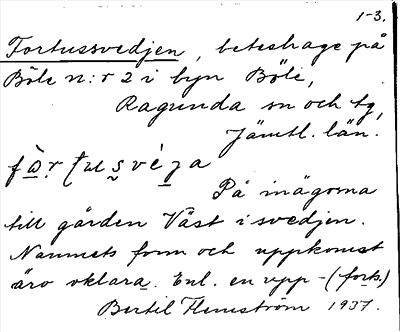 1-3.
Fortussvedjen, beteshage på
Böle n:r 2 i byn Böle,
Ragunda sn och tg,
Jämtl. län.
På inägorna
till gården Väst i svedjen.
Namnets form och uppkomst
äro oklara. Enl. en upp- (forts.)
Bertil Flemström 1937.